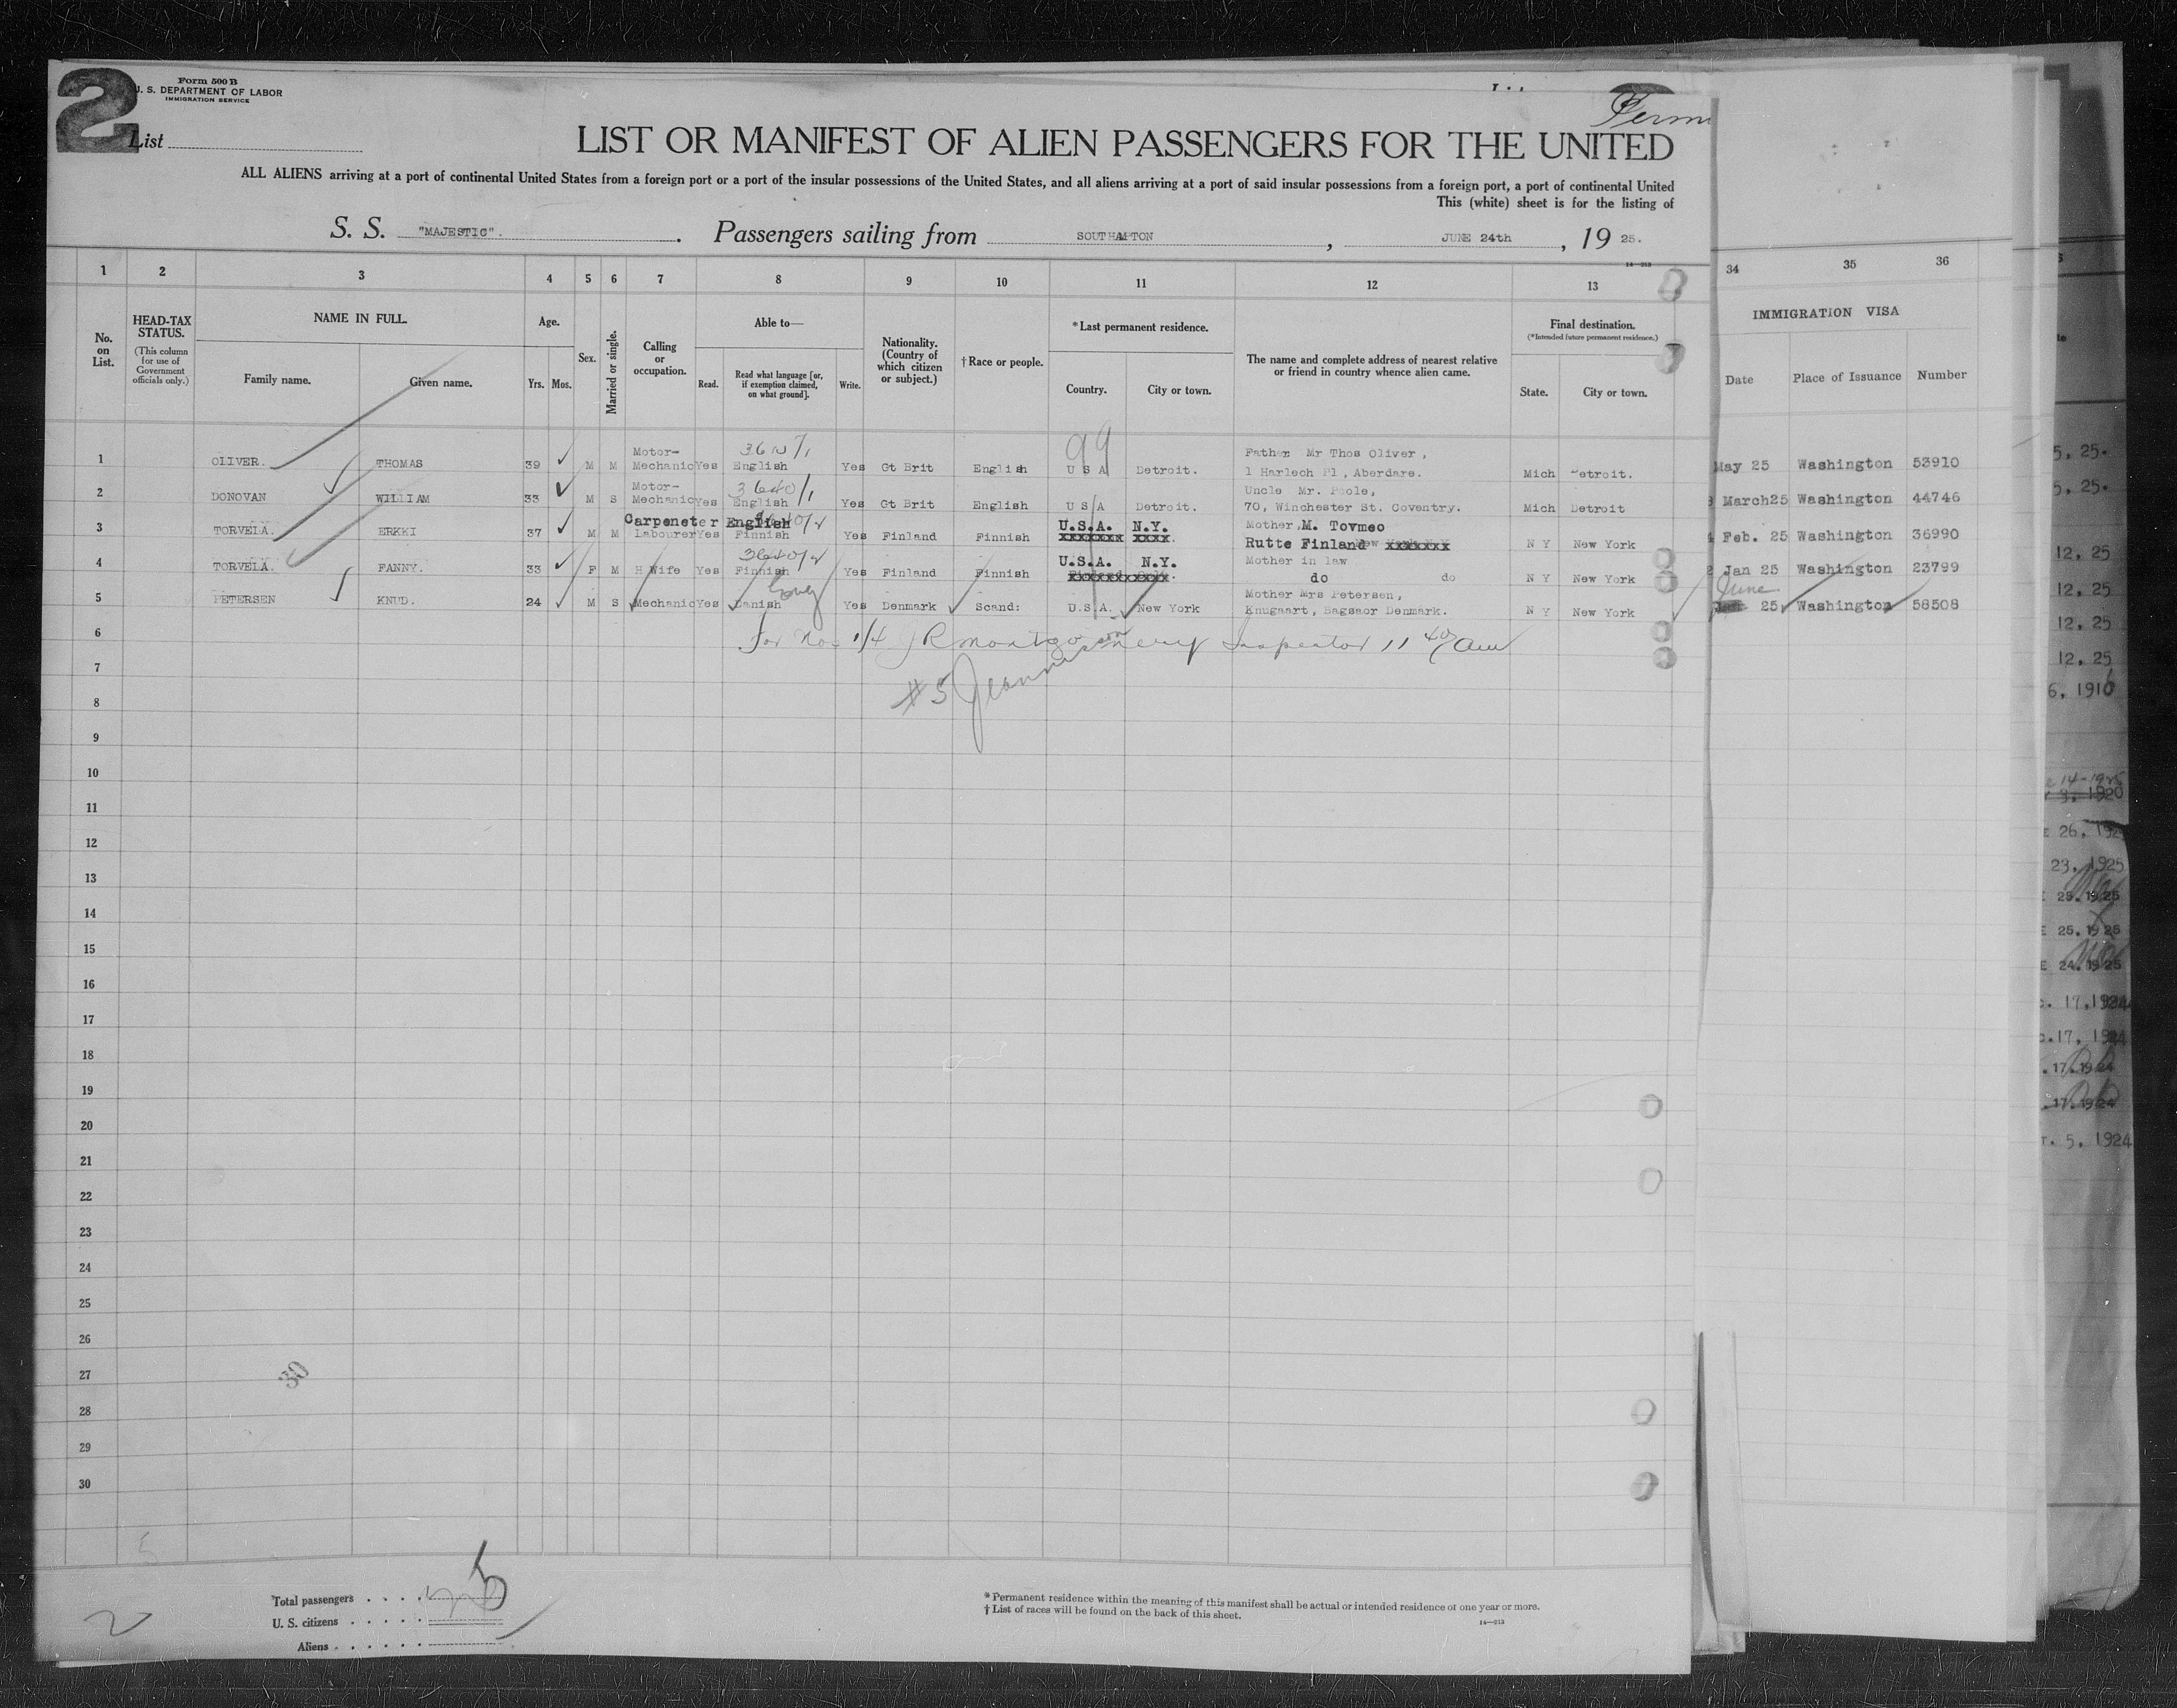 2
Form 500 B
U. S. DEPARTMENT OF LABOR
IMMIGRATION SERVICE
List
LIST OR MANIFEST OF ALIEN PASSENGERS FOR THE UNITED
ALL ALIENS arriving at a port of continental United States from a foreign port or a port of the insular possessions of the United States, and all aliens arriving at a port of said insular possessions from a foreign port, a port of continental United
This (white) sheet is for the listing of
S. S. "MAJESTIC". Passengers sailing from SOUTHAMPTON, JUNE 24th, 19 25.
1 2 3 4 5 6 7 8 9 10 11 12 13 34 35 36
No. on List.
HEAD-TAX STATUS.
(This column for use of Government officials only.)
NAME IN FULL.
Family name. Given name.
Age.
Yrs. Mos.
Sex.
Married or single.
Calling or occupation.
Able to—
Read. Read what language [or, if exemption claimed, on what ground]. Write.
Nationality. (Country of which citizen or subject.)
†Race or people.
*Last permanent residence.
Country. City or town.
The name and complete address of nearest relative or friend in country whence alien came.
Final destination.
(*Intended future permanent residence.)
State. City or town.
IMMIGRATION VISA
Date Place of Issuance Number
99
1 OLIVER. THOMAS 39 M M Motor-Mechanic Yes English Yes Gt Brit English U S A Detroit. Father Mr Thos Oliver, 1 Harlech Pl, Aberdare. Mich Detroit. May 25 Washington 53910
2 DONOVAN WILLIAM 33 M S Motor-Mechanic Yes English Yes Gt Brit English U S A Detroit. Uncle Mr. Poole, 70, Winchester St. Coventry. Mich Detroit March 25 Washington 44746
3 TORVELA. ERKKI 37 M M Carpeneter Labourer Yes English Finnish Yes Finland Finnish U.S.A. N.Y. Mother, M. Tovmeo Rutte Finland N Y New York Feb. 25 Washington 36990
4 TORVELA. FANNY. 33 F M H Wife Yes Finnish Yes Finland Finnish U.S.A. N.Y. Mother in law do do N Y New York Jan 25 Washington 23799
5 PETERSEN KNUD. 24 M S Mechanic Yes Danish Eng Yes Denmark Scand: U.S.A. New York Mother Mrs Petersen, Knugaart, Bagsaor Denmark. N Y New York June 25 Washington 58508
6 for Nos 1/4 J R Montgomery Inspector 11 40 am
7
# 5
8
9
10
11
12
13
14
15
16
17
18
19
20
21
22
23
24
25
26
27
30
28
29
30
Total passengers
U. S. citizens
Aliens
2
* Permanent residence within the meaning of this manifest shall be actual or intended residence of one year or more.
† List of races will be found on the back of this sheet.
14—213
5, 25.
5, 25.
12, 25
12, 25
12, 25
12, 25
6, 1916
26, 1925
23, 1925
25, 1925
25, 1925
24, 1925
17, 1924
17, 1924
17, 1924
17, 1924
5, 1924